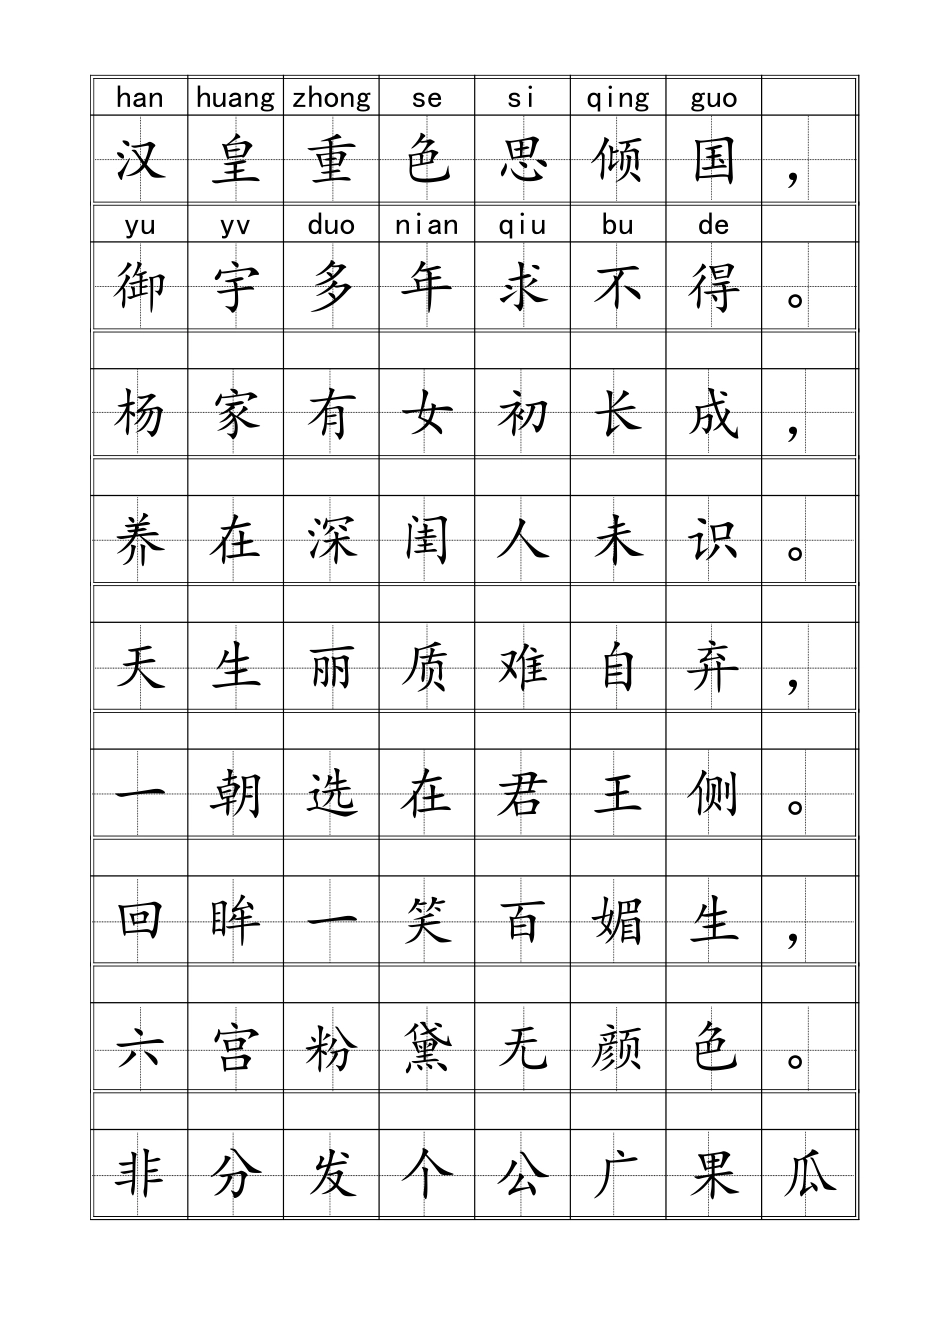 han huang zhong se si qing guo
汉皇重色思倾国，
yu yv duo nian qiu bu de
御宇多年求不得。
杨家有女初长成，
养在深闺人未识。
天生丽质难自弃，
一朝选在君王侧。
回眸一笑百媚生，
六宫粉黛无颜色。
非分发个公广果瓜